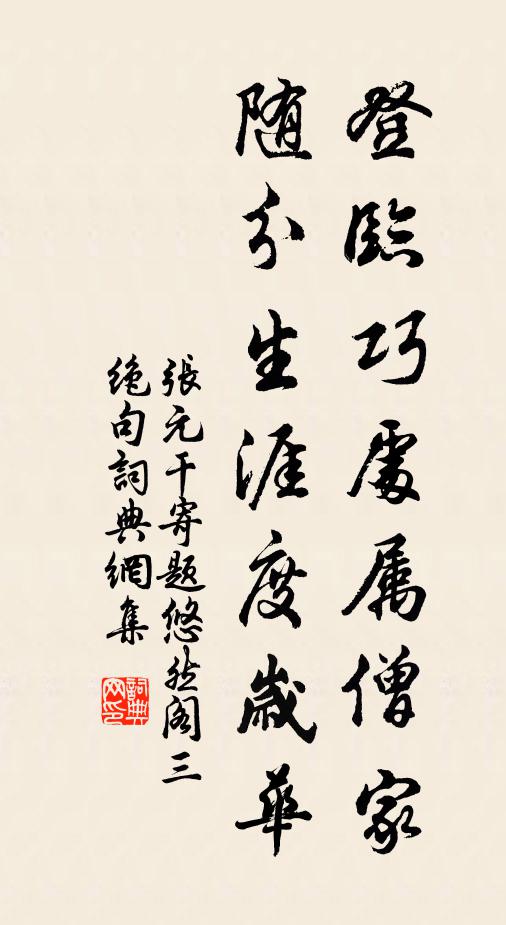 登臨巧處属僧家
随分生涯度歲華
張元干寄題悠然阁三
绝句詞典網集
詞典
网印